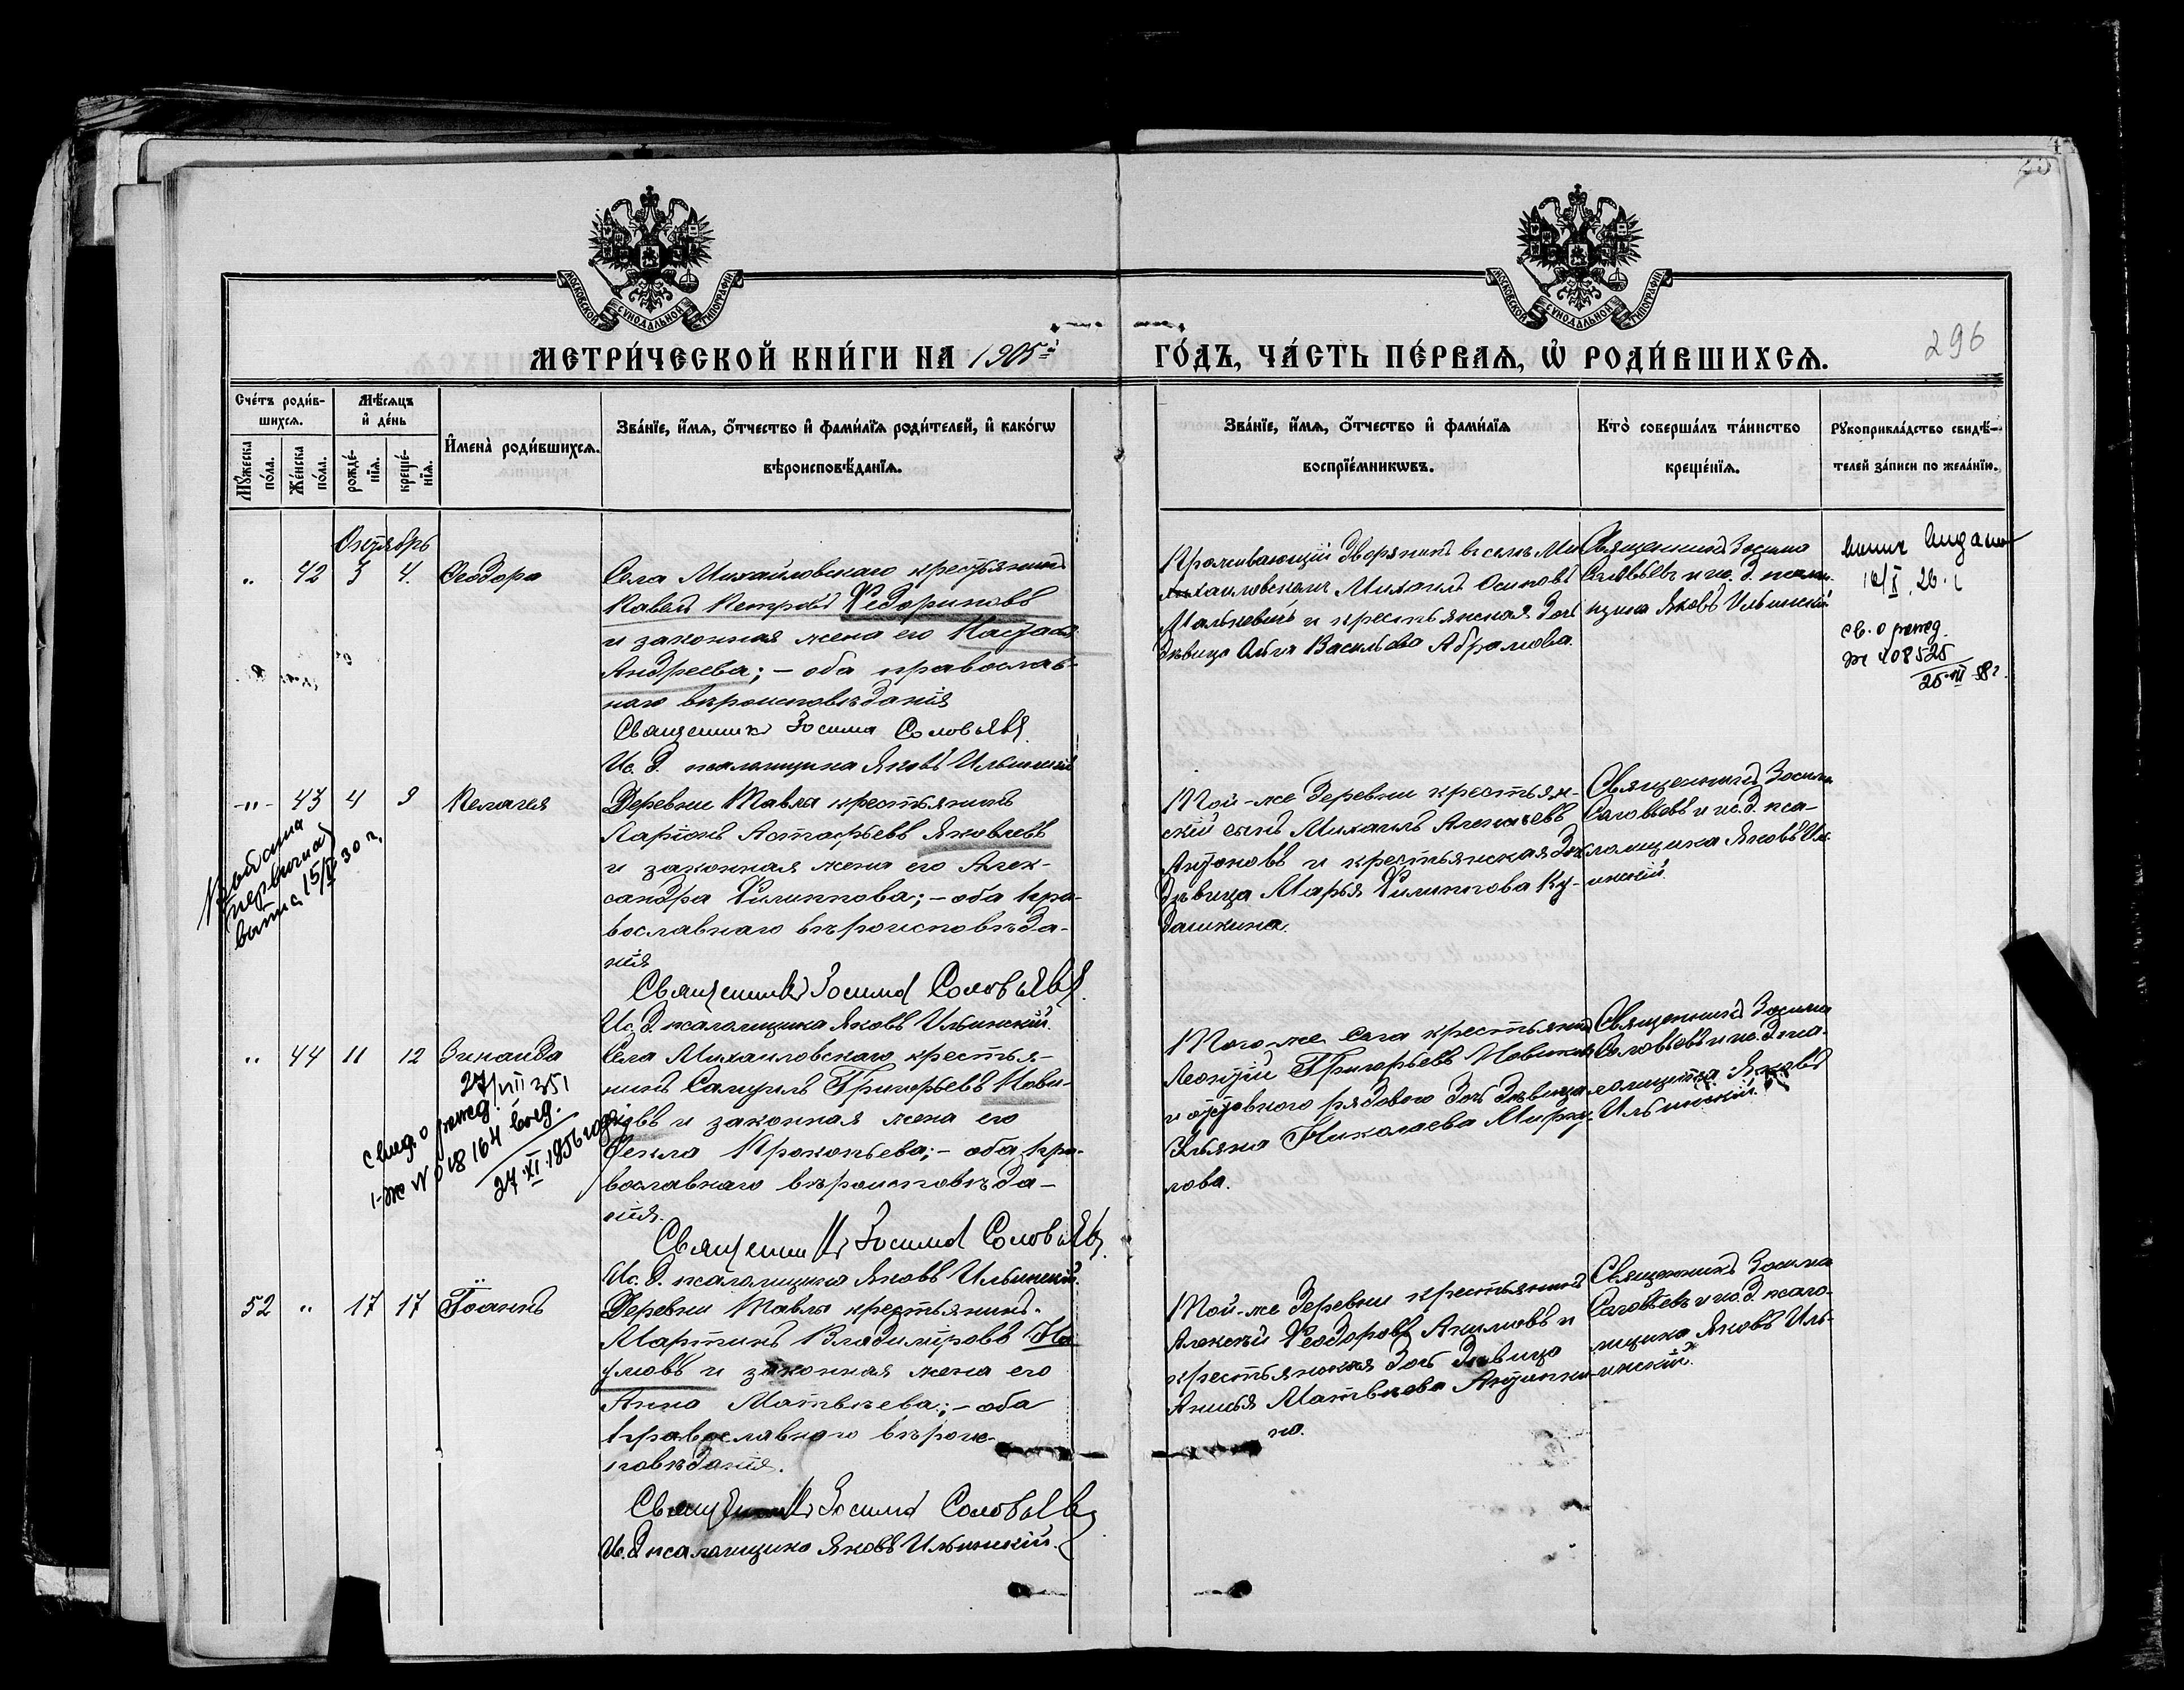 МОСКОВСКОЙ СѴНОДАЛЬНОЙ ТИПОГРАФІИ
МОСКОВСКОЙ СѴНОДАЛЬНОЙ ТИПОГРАФІИ
296
МЕТРИ́ЧЕСКОЙ КНИ́ГИ НА 1905й
ГО́ДЪ, ЧА́СТЬ ПЕ́РВАѦ, Ѡ҆ РОДИ́ВШИХСѦ.
Сче́тъ роди́в-
шихсѧ.
Мꙋ́жеска по́ла.
Же́нска по́ла.
Мѣ́сѧцъ
и҆ де́нь
рожде́-нїѧ.
креще́-нїѧ.
И҆мена̀ роди́вшихсѧ.
Зва́нїе, и҆́мѧ, ѻ҆́тчество и҆ фами́лїѧ роди́телей, и҆ како́гѡ
вѣроисповѣ́данїѧ.
Зва́нїе, и҆́мѧ, ѻ҆́тчество и҆ фами́лїѧ
воспрїе́мникѡвъ.
Кто̀ соверша́лъ та́инство
креще́нїѧ.
Рꙋкоприкла́дство свидѣ́-
телей за́писи по жела́нїю.
Октябрь
„ 42 3 4. Ѳеодора
Села Михайловскаго крестьянинъ
Павелъ Петровъ Ѳедориновъ
и законная жена его
Андреева; – оба православ-
наго вѣроисповѣданія
Священникъ Зосима Соловьевъ.
Ис. д. псаломщика Яковъ Ильинскій
Проживающій дворянинъ въ селѣ Ми-
хаиловскомъ Михаилъ Осиповъ
и крестьянская дочь
дѣвица Ольга Васильева Абрамова.
Священникъ Зосима
Соловьевъ и ис. д. псалом-
щика Яковъ Ильинскій
св. о рожд.
№ 408525
-"- 43 4 9 Пелагея
Деревни Тавлы крестьянинъ
Ларіонъ Астафьевъ Яковлевъ
и законная жена его Алек-
сандра Филиппова; – оба пра-
вославнаго вѣроисповѣда-
нія
Священникъ Зосима Соловьевъ.
Ис. д. псаломщика Яковъ Ильинскій.
Той-же деревни крестьян-
скій сынъ Михаилъ Алексѣевъ
Антоновъ и крестьянская дочь
дѣвица Марья Филиппова Ку-
дашкина.
Священникъ Зосима
Соловьевъ и ис. д. пса-
ломщика Яковъ Иль-
инскій.
15/V 30 г.
„ 44 11 12 Зинаида
27/VII 35г
свид. о рожд.
27.XI.1956 года
Села Михаиловскаго крестья-
нинъ Самуилъ Григорьевъ Нови-
ковъ и законная жена его
Ѳекла Прокопьева; – оба пра-
вославнаго вѣроисповѣда-
нія.
Священникъ Зосима Соловьевъ.
Ис. д. псаломщика Яковъ Ильинскій.
Того-же села крестьянинъ
Леонтій Григорьевъ Новиковъ
и отставного рядового дочь дѣвица
Ульяна Николаева Мирку-
лова.
Священникъ Зосима
Соловьевъ и ис. д. пса-
ломщика Яковъ
Ильинскій.
52 „ 17 17 Іоаннъ
Деревни Тавлы крестьянинъ
Мартинъ Владиміровъ На-
умовъ и законная жена его
Анна Матвѣева; – оба
православнаго вѣроис-
повѣданія.
Священникъ Зосима Соловьевъ
Ис. д. псаломщика Яковъ Ильинскій.
Той-же деревни крестьянинъ
Алексѣй Ѳеодоровъ Акимовъ и
крестьянская дочь дѣвица
Анисья Матвѣева Антипки-
на.
Священникъ Зосима
Соловьевъ и ис. д. псало-
мщика Яковъ Иль-
инскій.